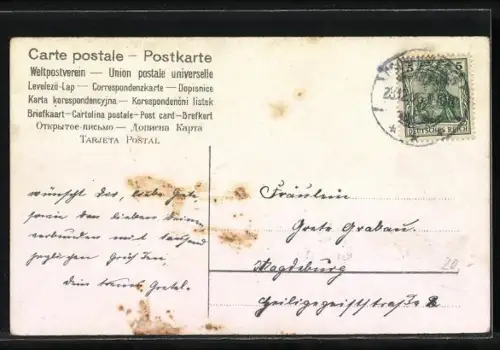 Carte postale – Postkarte
Weltpostverein — Union postale universelle
Levelező-Lap — Correspondenzkarte — Dopisnice
Karta korespondencyjna — Korespondenční lístek
Briefkaart — Cartolina postale — Post card — Brefkort
Открытое-письмо — Дописна Карта
TARJETA POSTAL
5
DEUTSCHES REICH
wünscht dir, liebe Grete,
sowie den lieben Deinen
verbunden mit tausend
herzlichen Grüßen,
Dein Gretel.
Fräulein
Grete Grabau.
Magdeburg
Heiligegeiststraße
20